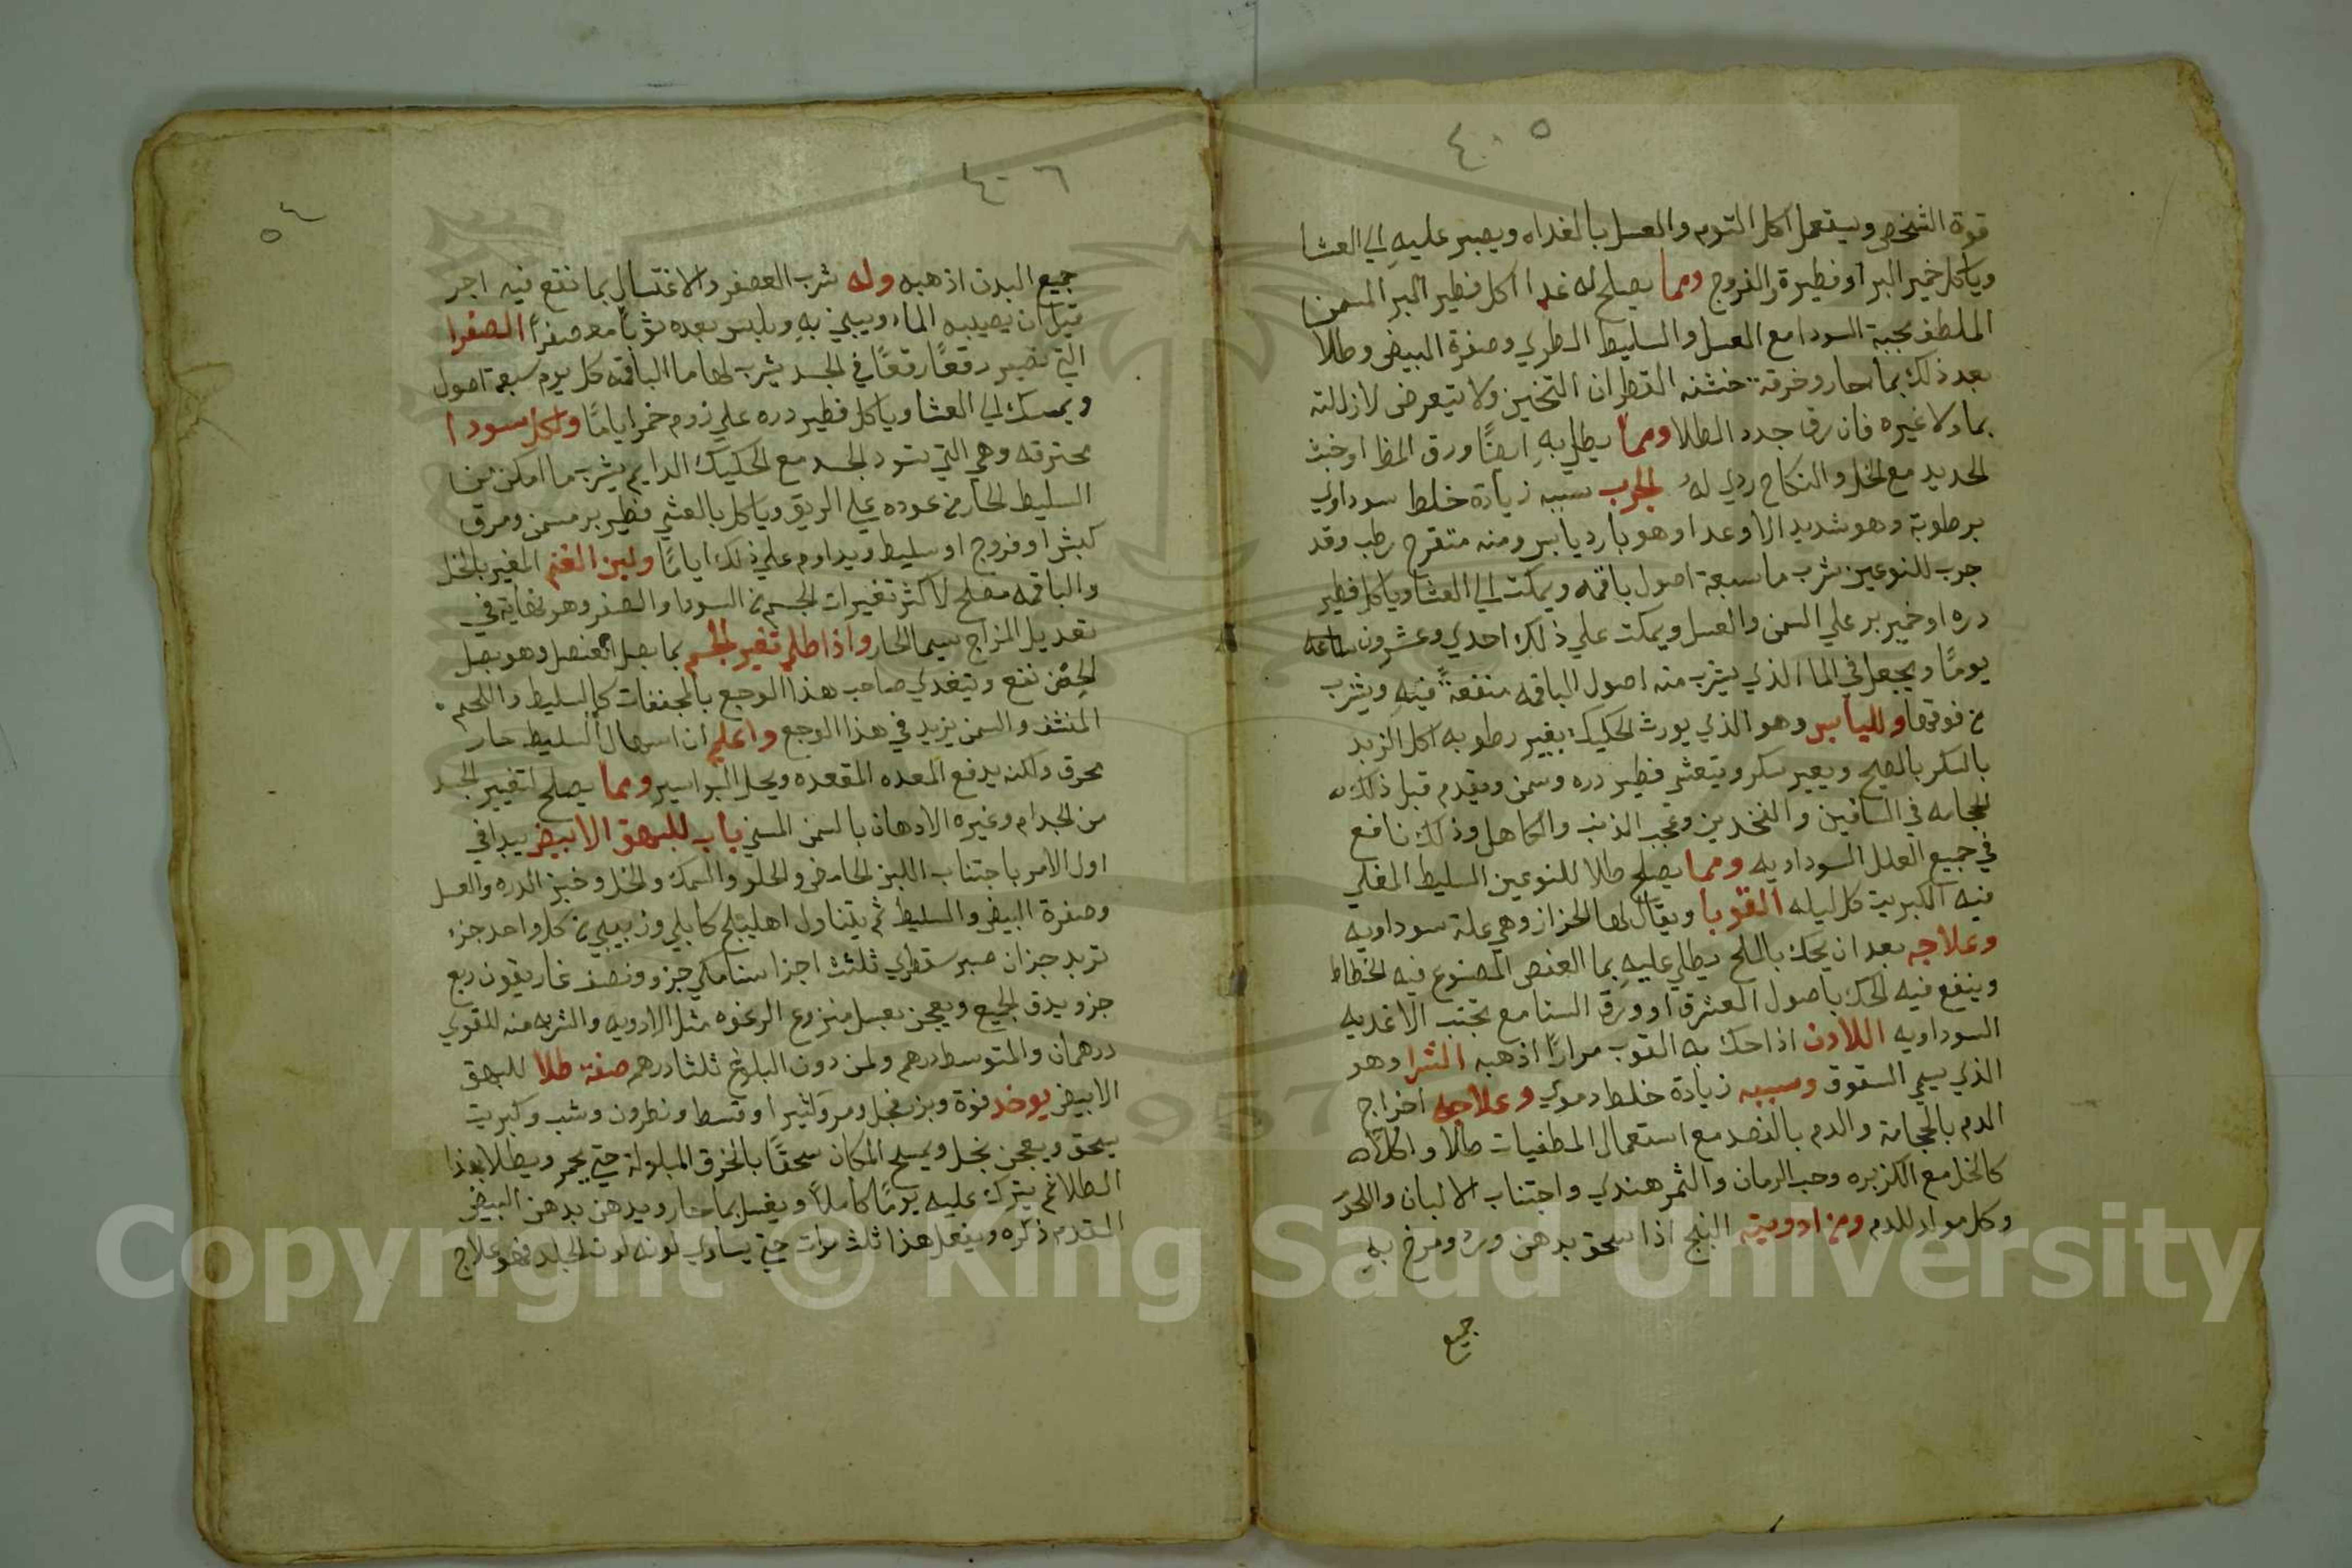 ٤٠٥
قوة الشخص ويستعمل اكل الثوم والعسل بالغداه ويصبر عليه الي العشا
وياكل خمير البر او فطيرة والفروج ومما يصلح له غدا اكل فطير البر المسمن
الملطف بحبة السودا مع العسل والسليط الطري وصفرة البيض وطلا
بعد ذلك بماء حار وخرقة خشنه القطران الثخين ولا تتعرض لازالته
بماء ولا غيره فان رق جدد الطلا ومما يطلي به ايضًا ورق المظ او خبث
الحديد مع الخل والنكاح ردي له الجرب سببه زيادة خلط سوداوي
برطوبة وهو شديد الاوعدا وهو بارد يابس ومنه متقرح رطب وقد
جرب للنوعين شرب ما سبعة اصول باقمه ويمكث الي العشا وياكل فطير
دره او خمير بر علي السمن والعسل ويمكث علي ذلك احدي وعشرون ساعه
يومًا ويجعل في الماء الذي يشرب منه اصول الباقمه منقعةً فيه ويشرب
من فوقها ولليابس وهو الذي يورث الحكيك بغير رطوبه اكل الزبد
بالسكر بالصبح وبغير سكر ويتعشي فطير دره وسمن ويقدم قبل ذلك
الحجامه في الساقين والفخدين وعجب الذنب والكاهل وذلك نافع
في جميع العلل السوداويه ومما يصلح طلا للنوعين السليط المغلي
فيه الكبريت كل ليله القوبا ويقال لها الحزاز وهي علة سوداويه
وعلاجه بعد ان يحك بالملح يطلي عليه بما العفص المصنوع فيه الخطاط
وينفع فيه الحك باصول العشرق او ورق السنا مع تجنب الاغديه
السوداويه اللادن اذا حك به القوب مرارًا اذهبه الشرا وهو
الذي يسمي السقوق وسببه زيادة خلط دموي وعلاجه اخراج
الدم بالحجامة والدم بالفصد مع استعمال المطفيات طلا واكلًا
كالخل مع الكزبره وحب الرمان والتمر هندي واجتناب الالبان واللحم
وكل مواد للدم ومن ادويته البنج اذا سحق بدهن ورد ومرخ به
جميع
٤٠٦
٥٤
جميع البدن اذهبه وله شرب العصفر والاغتسال بما نقع فيه اجر
قبل ان يصيبه الماء ويلبس بعده ثوبًا معصفرًا الصفرا
التي تصير رقعًا رقعًا في الجسد يشرب لها ما الباقمه كل يوم سبعة اصول
ويمسك الي العشا وياكل فطير دره علي زوم خمر ايامًا ولكل سودا
محترقه وهي التي تسود الجسد مع الحكيك الدايم يشرب ما امكن من
السليط الحار من عوده علي الريق وياكل بالعشي فطير بر مسمن ومرق
كبش او فروج او سليط ويداوم علي ذلك ايامًا ولبن الغنم المغير بالخل
والباقمه مصلح لاكثر تغيرات الجسم من السودا والصفر وهو نهاية في
تعديل المزاج سيما الحار واذا طلي تغير الجسم بما بصل العنصل وهو بصل
نفع ويتغدي صاحب هذا الوجع بالمجففات كالسليط واللحم
المنشف والسمن يزيد في هذا الوجع واعلم ان اسهال السليط حار
محرق ولكنه يدفع المعده المقعده ويحل البواسير ومما يصلح لتغيير الجسد
من الجدام وغيره الادهان بالسمن المسني باب للبهق الابيض يبدا في
اول الامر باجتناب اللبن الحامض والحلو والسمك والخل وخبز الدره والعسل
وصفرة البيض والسليط ثم يتناول اهليلج كابلي وزبيب من كل واحد جزء
تربد جزان صبر سقطري ثلثت اجزا سنا مكي جزو ونصف غاريقون ربع
جزو يدق الجميع ويعجن بعسل منزوع الرغوه مثل الادويه والشربه منه للقوي
درهمان والمتوسط درهم ولمن دون البلوغ ثلثا درهم صفة طلا للبهق
الابيض يوخد فوة وبزر فجل ومر وكثيرا وقسط ونطرون وشب وكبريت
يسحق ويعجن بخل ويمسح المكان سحقًا بالخرق المبلولة حتي يحمر ويطلا بهذا
الطلا ثم يترك عليه يومًا كاملًا ويغسل بماء حار ويدهن بدهن البيض
المتقدم ذكره ويفعل هذا ثلث مرات حتي يساوي لونه لون الجلد فهو علاج
Copyright © King Saud University
1957